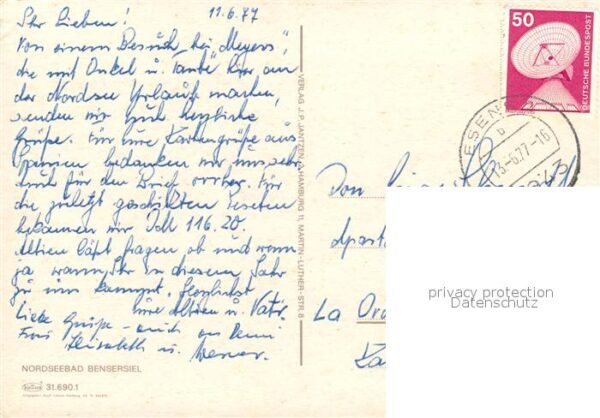 Ihr Lieben! 11.6.77
Von einem Besuch bei "Meyers",
die mit Onkel u. Tante hier an
der Nordsee Urlaub machen,
senden wir Euch herzliche
Grüße. Für Eure Kartengrüße aus
Spanien bedanken wir uns sehr
auch für den Brief vorher. Für
die zuletzt geschickten
bekommen wir DM 116.20.
läßt fragen ob und wenn
ja wann, Ihr in diesem Jahr
zu uns kommt. Herzlichst
Eure u. Vati.
Liebe Grüße - auch an
Elisabeth u. Werner.
NORDSEEBAD BENSERSIEL
31.690.1
VERLAG J. P. JANTZEN, HAMBURG 11, MARTIN-LUTHER-STR. 8
50
DEUTSCHE BUNDESPOST
ESEN
b
13.-6.77-16
2943
Don
Aparta
La
privacy protection
Datenschutz